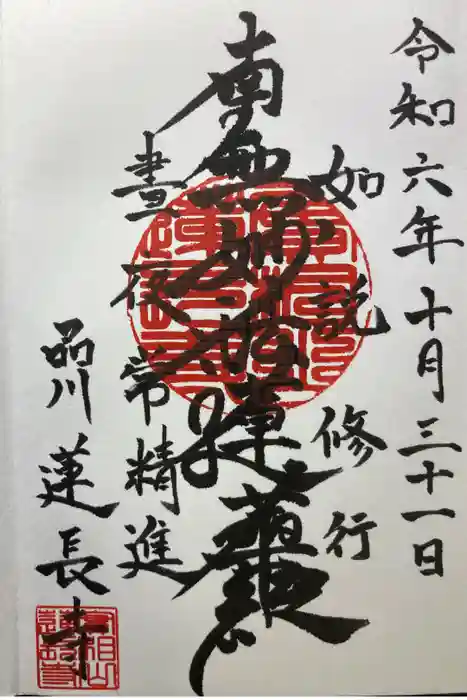 令和六年十月三十一日
如説修行
南無妙法蓮華經
晝夜常精進
品川 蓮長寺